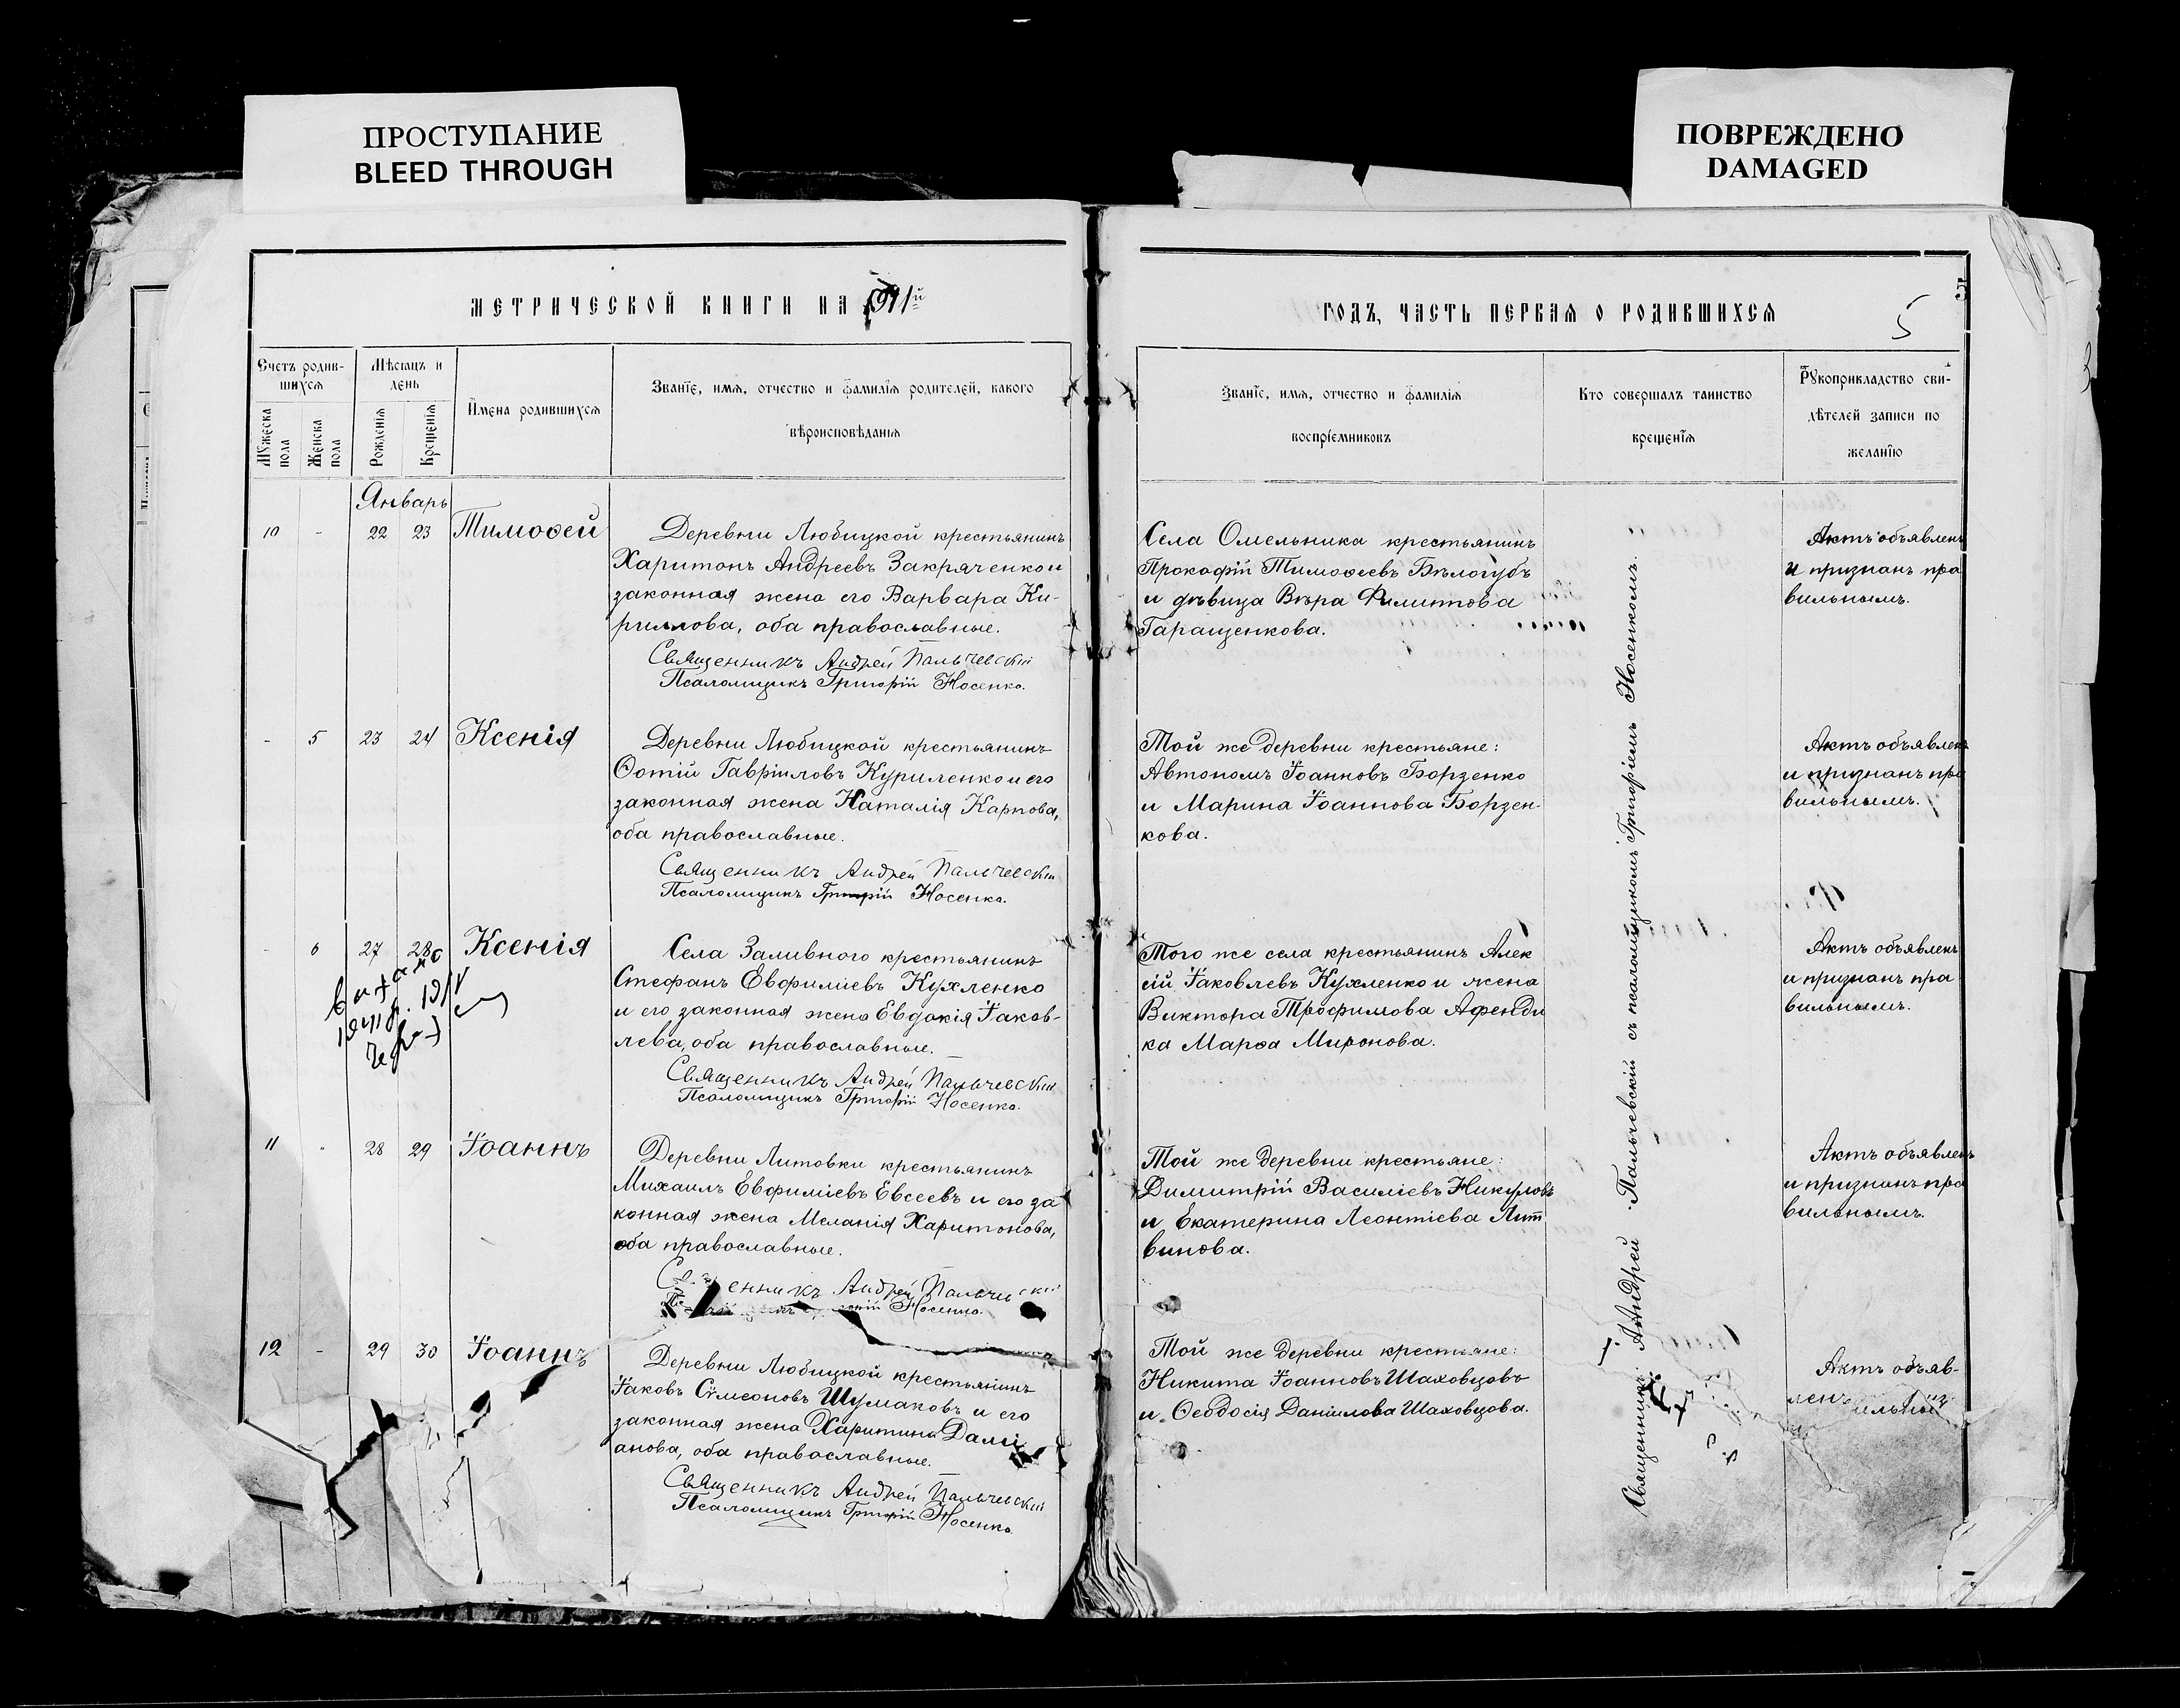 ПРОСТУПАНИЕ
BLEED THROUGH
ПОВРЕЖДЕНО
DAMAGED
МЕТРИЧЕСКОЙ КНИГИ НА 1911й
ГОДЪ, ЧАСТЬ ПЕРВАЯ О РОДИВШИХСЯ
5
5
Счетъ родив-
шихся
Мѣсяцъ и
день
Мужеска
пола
Женска
пола
Рожденія
Крещенія
Имена родившихся
Званіе, имя, отчество и фамилія родителей, какого
вѣроисповѣданія
Званіе, имя, отчество и фамилія
воспріемниковъ
Кто совершалъ таинство
крещенія
Рукоприкладство сви-
дѣтелей записи по
желанію
Январь
10 - 22 23 Тимоѳей
Деревни Любицкой крестьянинъ
Харитонъ Андреевъ Закряченко и
законная жена его Варвара Ки-
риллова, оба православные.
Священникъ Андрей Пальчевскій
Псаломщикъ Григорій Носенко.
Села Омельника крестьянинъ
Прокофій Тимоѳеевъ Бѣлогубъ
и дѣвица Вѣра Филиппова
Гаращенкова.
Актъ объявленъ
и признанъ пра
вильнымъ.
- 5 23 24 Ксенія
Деревни Любицкой крестьянинъ
Ѳотій Гавріиловъ Куриленко и его
законная жена Наталія Карпова,
оба православные.
Священникъ Андрей Пальчевскій
Псаломщикъ Григорій Носенко.
Той же деревни крестьяне:
Автономъ Іоанновъ Борзенко
и Марина Іоаннова Борзен-
кова.
Актъ объявленъ
и признанъ пра
вильнымъ.
- 6 27 28 Ксенія
Села Заливного крестьянинъ
Стефанъ Евфиміевъ Кухленко
и его законная жена Евдокія Іаков-
лева, оба православные.
Священникъ Андрей Пальчевскій
Псаломщикъ Григорій Носенко.
Того же села крестьянинъ Алек
сій Іаковлевъ Кухленко и жена
Виктора Трофимова Афенди
ка Марѳа Миронова.
Актъ объявленъ
и признанъ пра
вильнымъ.
11 " 28 29 Іоаннъ
Деревни Литовки крестьянинъ
Михаилъ Евфиміевъ Евсеевъ и его за
конная жена Меланія Харитонова,
оба православные.
Андрей Пальчевскій
Носенко.
Той же деревни крестьяне:
Димитрій Василіевъ Никуловъ
и Екатерина Леонтіева Лит
винова.
Актъ объявленъ
и признанъ пра
вильнымъ.
12 - 29 30 Іоаннъ
Деревни Любицкой крестьянинъ
Іаковъ Сѵмеоновъ Шумаковъ и его
законная жена Харитина Дамі
анова, оба православные.
Священникъ Андрей Пальчевскій
Псаломщикъ Григорій Носенко.
Той же деревни крестьяне:
Никита Іоанновъ Шаховцовъ
и Ѳеодосія Даніилова Шаховцова.
Актъ объяв-
ленъ
Священникъ Андрей Пальчевскій съ псаломщикомъ Григоріемъ Носенкомъ.